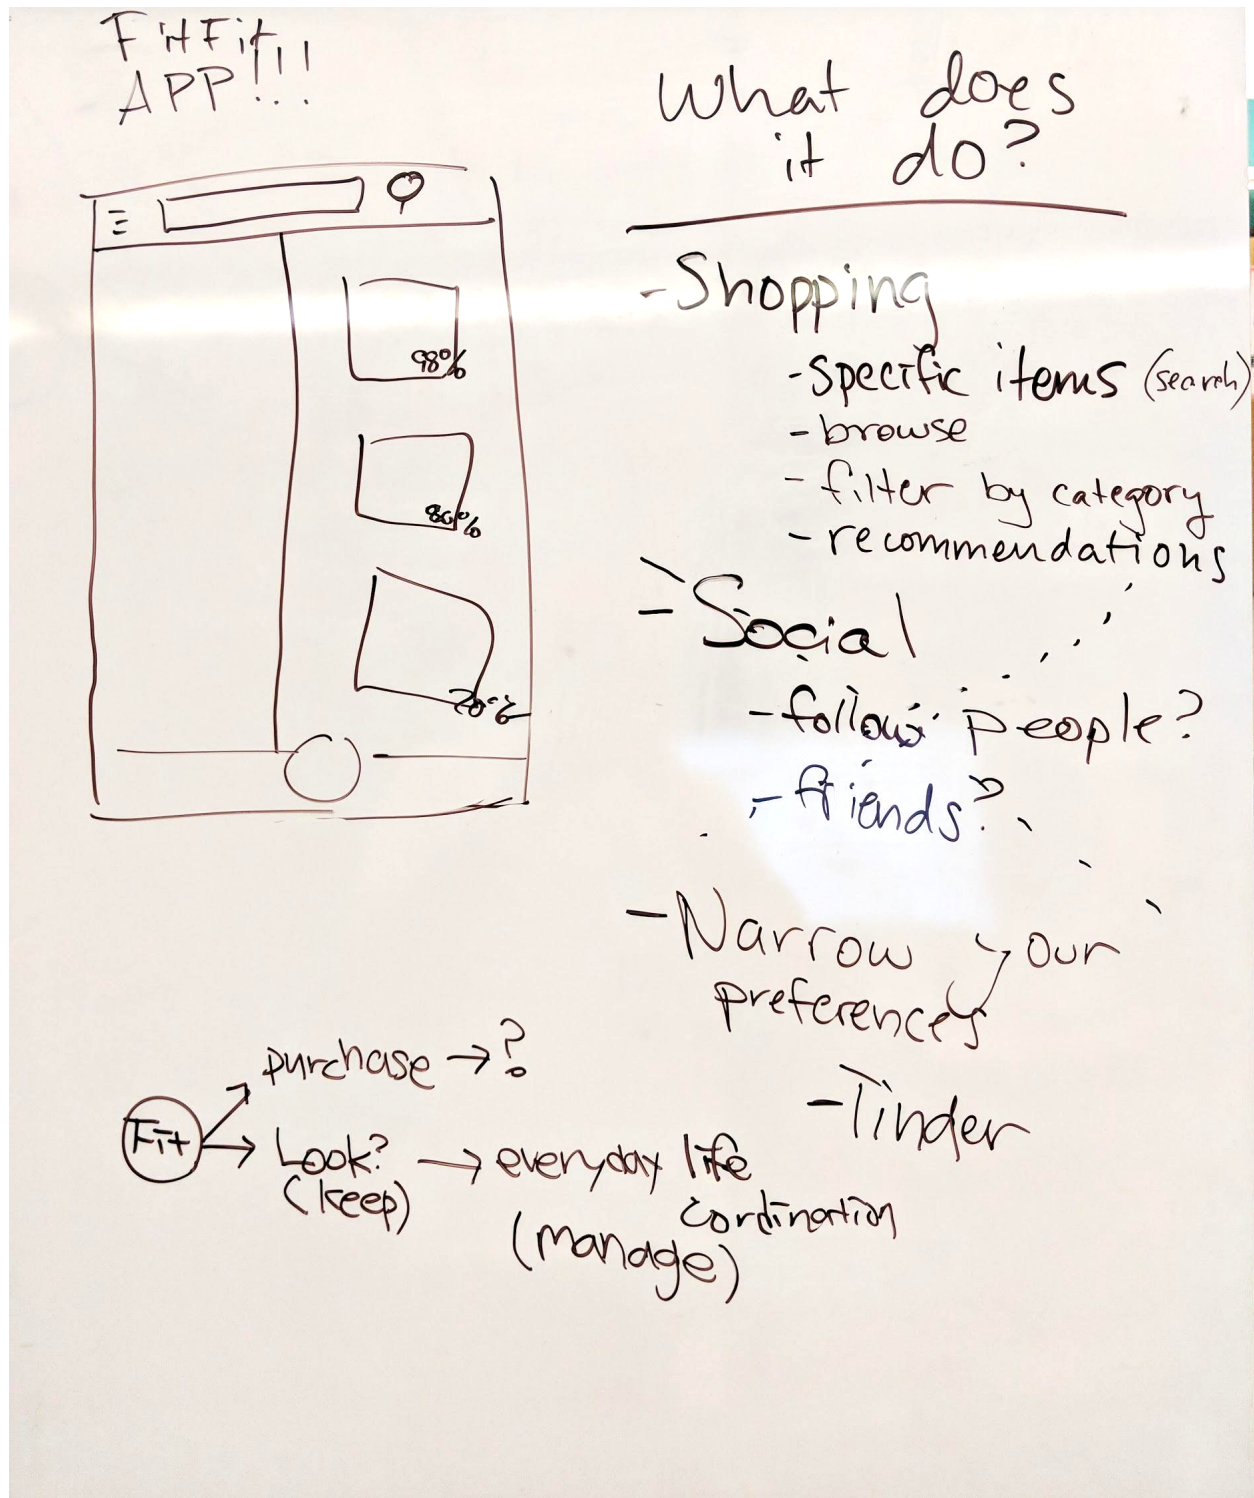 FitFit
APP!!!
98%
80%
70%
What does
it do?
- Shopping
- specific items (search)
- browse
- filter by category
- recommendations
- Social
- follow people?
- friends?
- Narrow your
preferences
- Tinder
Fit
purchase → ?
Look? → everyday life
(keep)
cordination
(manage)